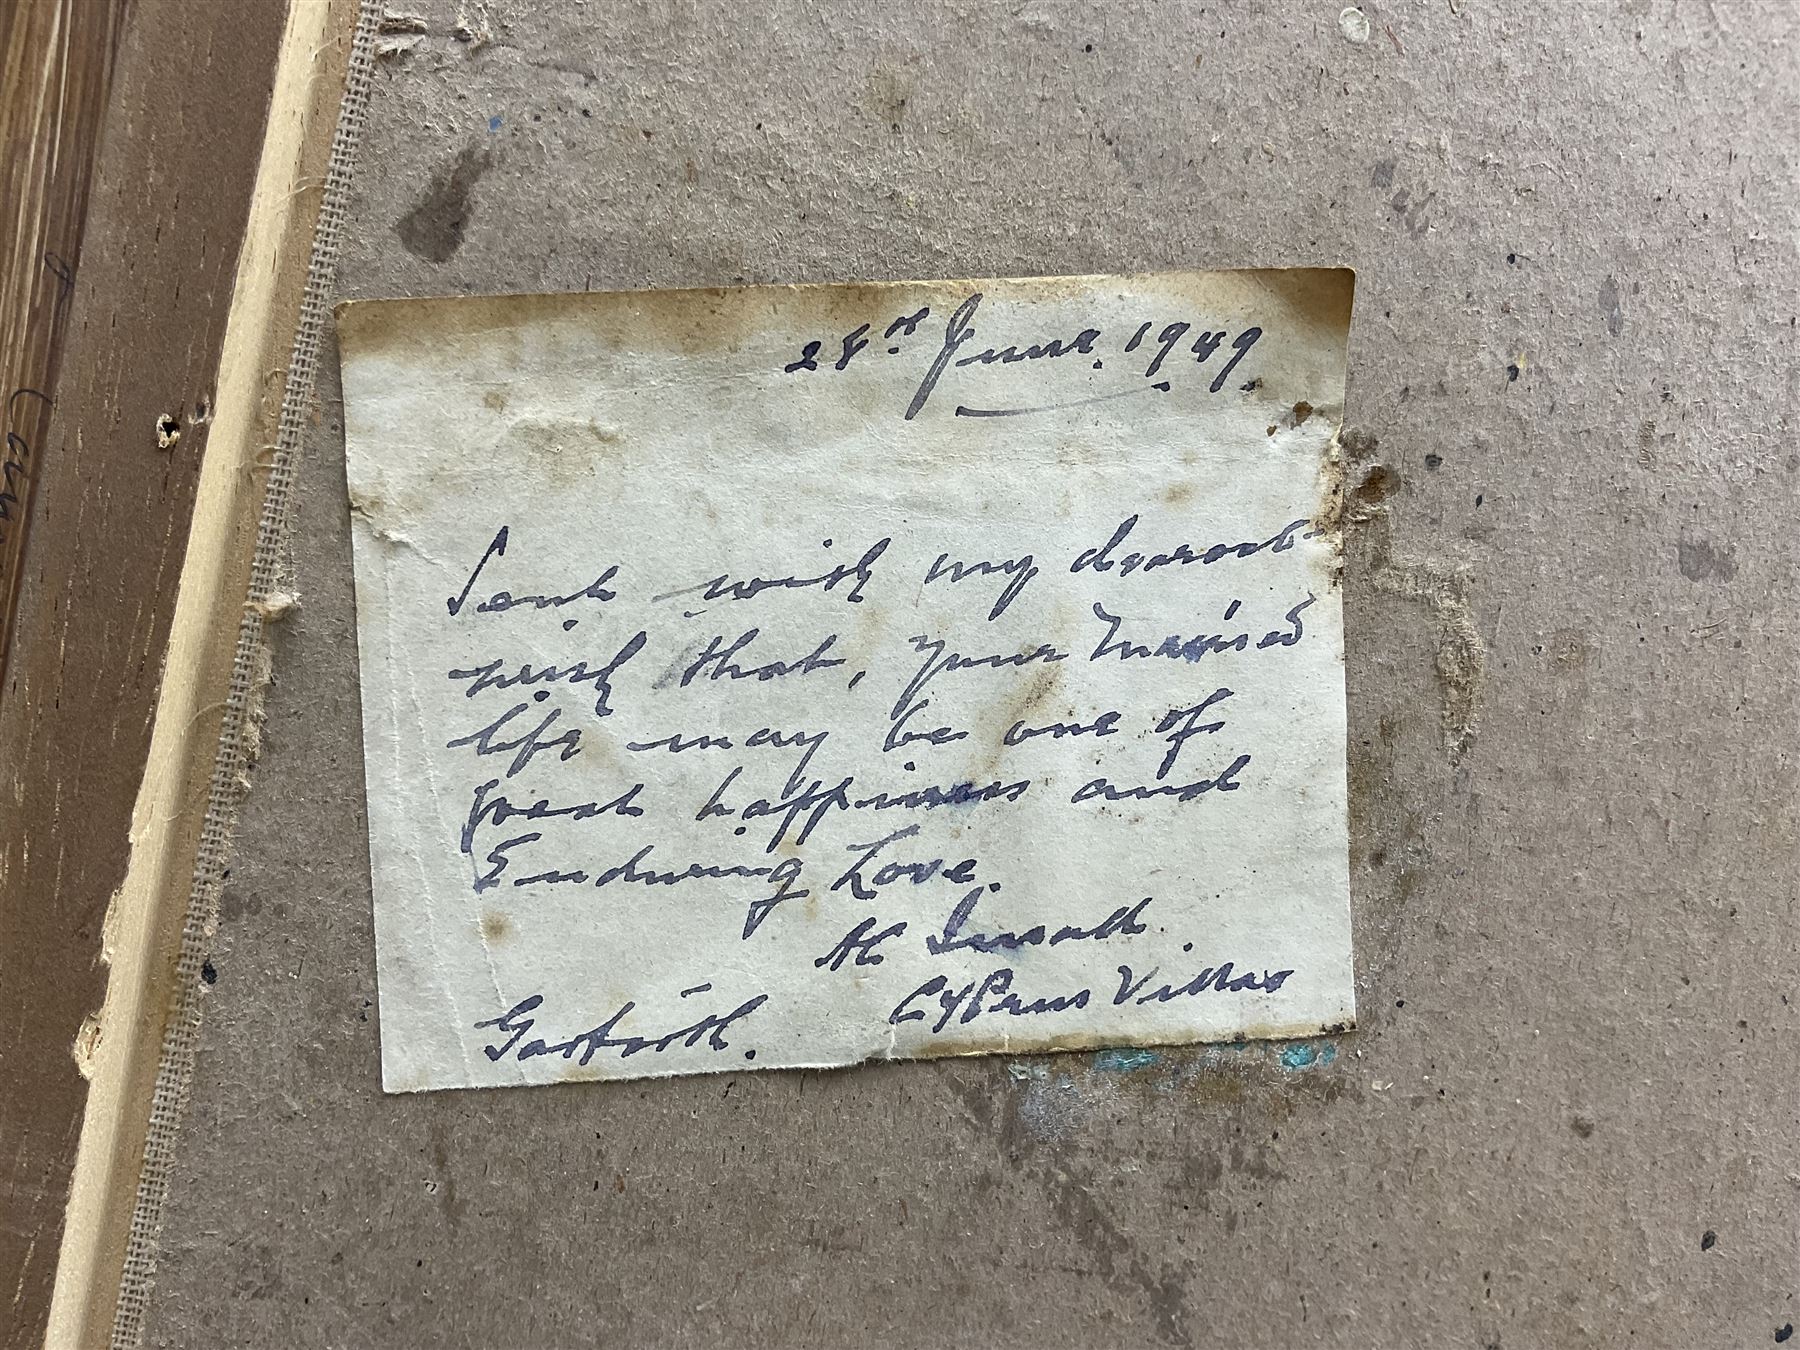 28th June. 1949.
Sent with my dearest
wish that, your Married
life may be one of
great happiness and
Enduring Love.
Cyprus Villas
Garforth.